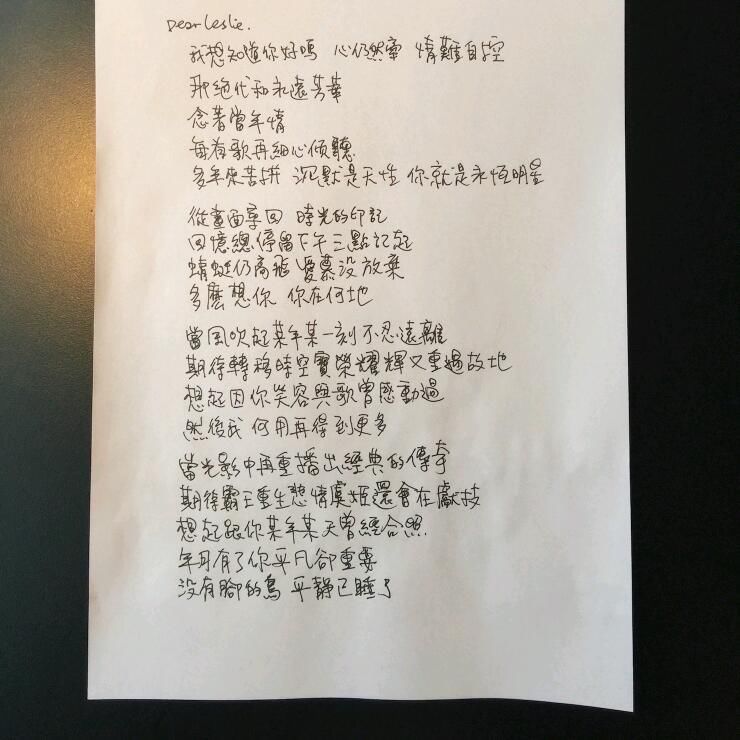 Dear Leslie.
我想知道你好嗎 心仍然牽 情難自控
那絕代和永遠芳華
念著當年情
每有歌再細心傾聽
多年來苦拼 沉默是天性 你就是永恆明星
從畫面尋回 時光的印記
回憶總停留下午三點記起
蜻蜓仍高飛 愛慕沒放棄
多麼想你 你在何地
當風吹起某年某一刻不忍遠離
期待轉移時空寶榮耀輝又重過故地
想起因你笑容與歌曾感動過
然後我 何用再得到更多
當光影中再重播出經典的傳奇
期待霸王重生悲情虞姬還會在獻技
想起跟你某年某天曾經合照
年月有了你平凡卻重要
沒有腳的鳥 平靜已睡了